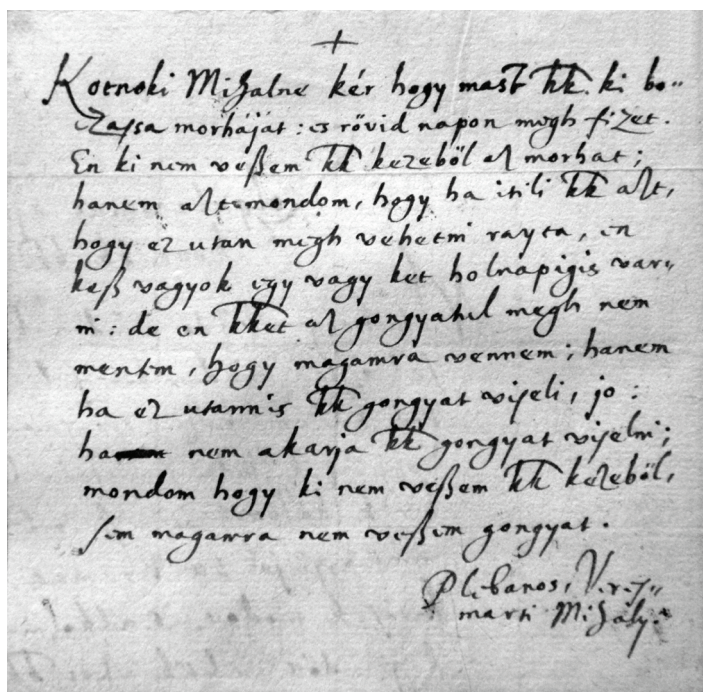 +
Kotnoki Mihalne kér hogy mast kk. ki bo⸗
czassa morháját: es rövid napon megh fizet.
En ki nem veßem kk kezeböl az morhat;
hanem azt mondom, hogy ha itili kk azt,
hogy ez utan megh vehetni rayta, en
keß vagyok egy vagy ket holnapigis var⸗
ni: de en kket az gongyatul megh nem
mentem, hogy magamra vennem; hanem
ha ez utannis kk gongyat viseli, jo:
ha nem akarja kk gongyat viselni;
mondom hogy ki nem veßem kk kezeböl,
sem magamra nem veßem gongyat.
Plebanos, Veres⸗
marti Mihály.